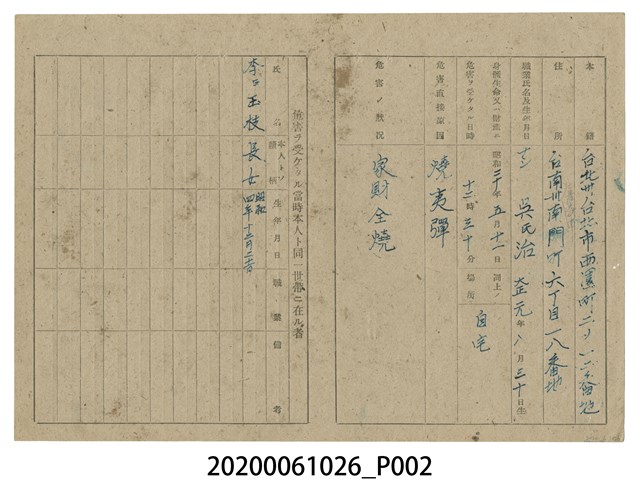 本籍 台北州台北市西園町二ノ一二六番地
住所 台南州台南市南門町六丁目一八番地
職業氏名及生年月日 ナシ 吳氏治 大正元年八月三十日生
身體生命又ハ財産ニ危害ヲ受ケタル日時 昭和二十年五月十一日 十二時三十分
同上ノ場所 自宅
危害直接原因 燒夷彈
危害ノ狀況 家財全燒
危害ヲ受ケタル當時本人ト同一世帶ニ在ル者
氏名 本人トノ續柄 生年月日 職業 備考
李氏玉枝 長女 昭和四年十二月二日
20200061026_P002